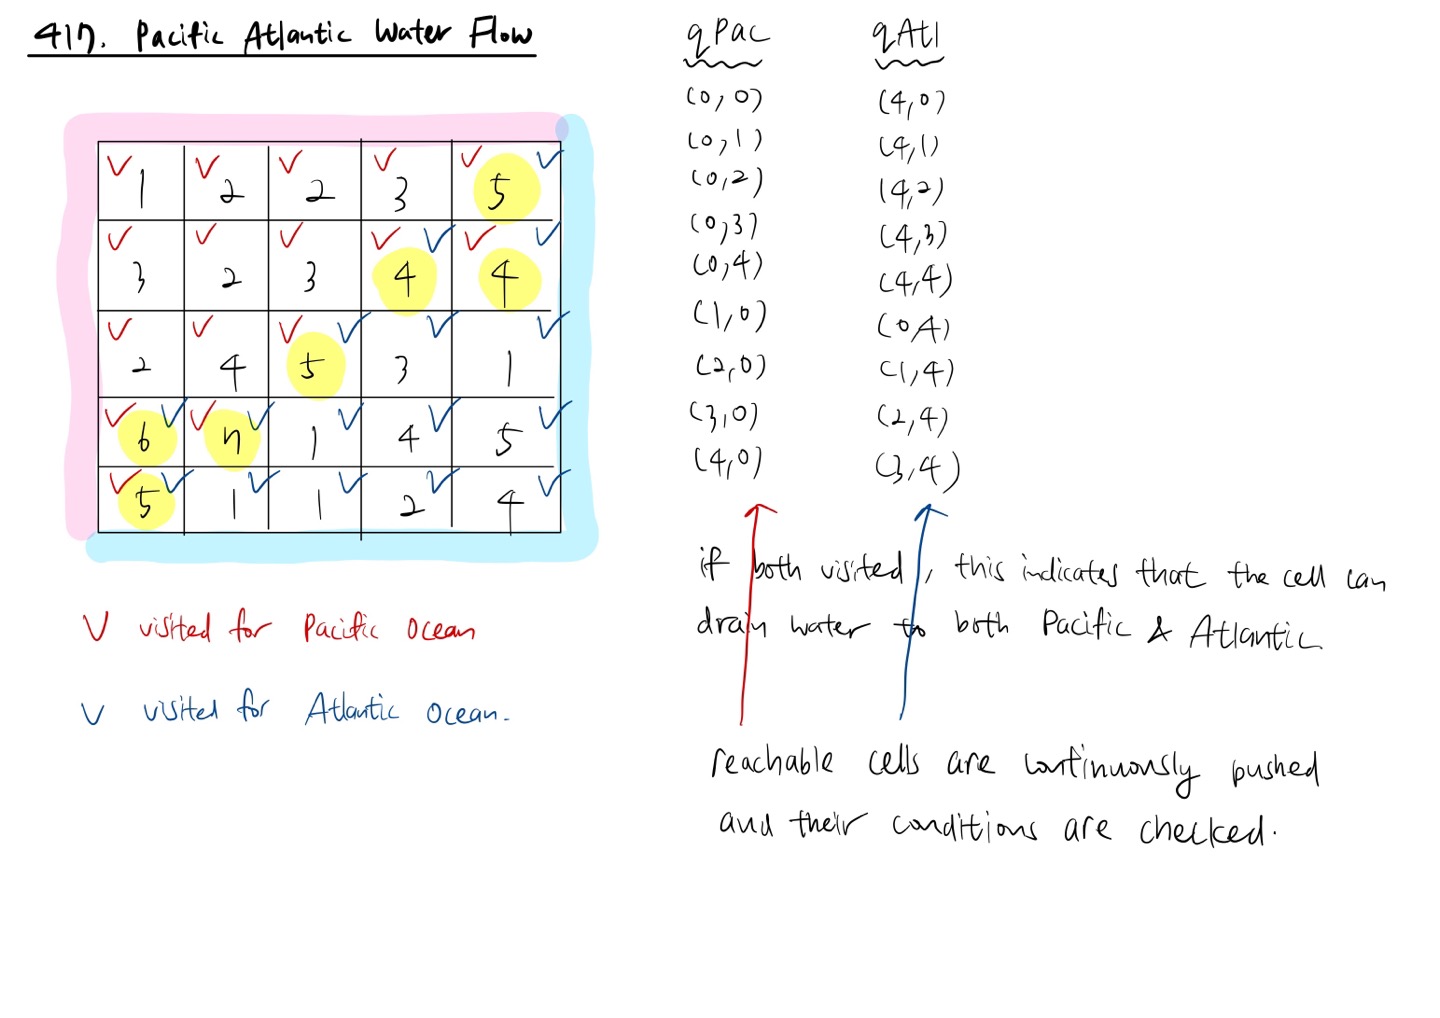 417. Pacific Atlantic Water Flow
1 2 2 3 5
3 2 3 4 4
2 4 5 3 1
6 7 1 4 5
5 1 1 2 4
V visited for Pacific Ocean
V visited for Atlantic Ocean.
qPac qAtl
(0,0) (4,0)
(0,1) (4,1)
(0,2) (4,2)
(0,3) (4,3)
(0,4) (4,4)
(1,0) (0,4)
(2,0) (1,4)
(3,0) (2,4)
(4,0) (3,4)
if both visited, this indicates that the cell can
drain water to both Pacific & Atlantic.
reachable cells are continuously pushed
and their conditions are checked.